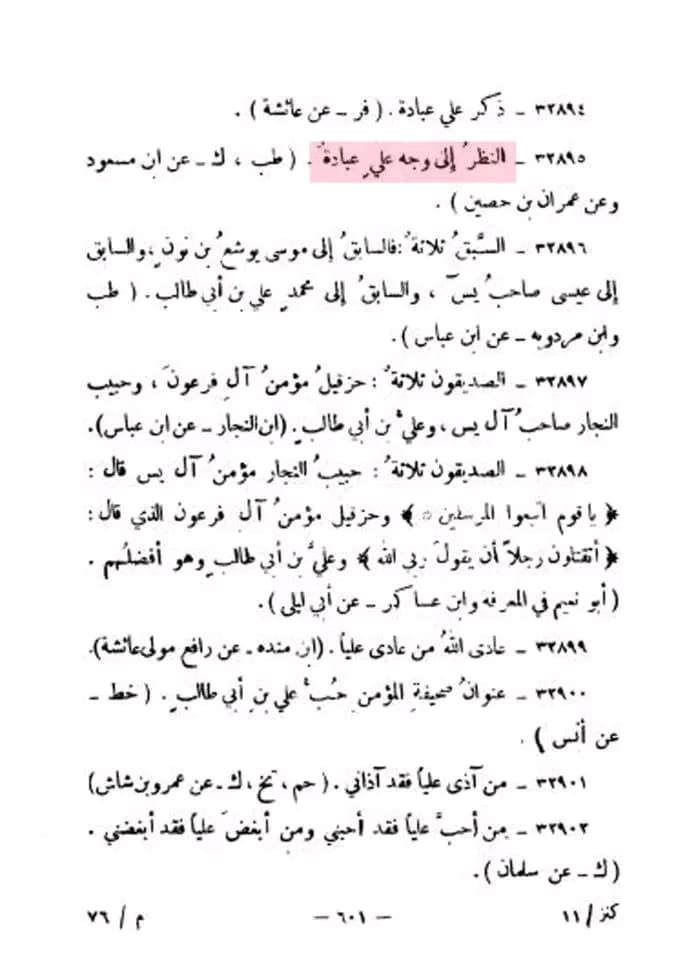 ٣٢٨٩٤ - ذكر علي عبادة . ( فر - عن عائشة ) .
٣٢٨٩٥ - النظرُ إلى وجه عليٍ عبادةٌ . ( طب ، ك - عن ابن مسعود
وعن عمران بن حصين ) .
٣٢٨٩٦ - السَّبقُ ثلاثةٌ : فالسابقُ إلى موسى يوشعُ بن نون ، والسابق
إلى عيسى صاحبُ يس ، والسابقُ إلى محمدٍ علي بن أبي طالب . ( طب
وابن مردويه - عن ابن عباس ) .
٣٢٨٩٧ - الصديقون ثلاثةٌ : حزقيلُ مؤمنُ آلِ فرعونَ ، وحبيب
النجار صاحبُ آل يس ، وعليُّ بن أبي طالبٍ . (ابن النجار - عن ابن عباس).
٣٢٨٩٨ - الصديقون ثلاثةٌ : حبيبُ النجار مؤمنُ آل يس قال :
﴿ يا قوم اتبعوا المرسلين ﴾ وحزقيل مؤمنُ آل فرعون الذي قال :
﴿ أتقتلون رجلاً أن يقولَ ربي الله ﴾ وعليُّ بن أبي طالبٍ وهو أفضلُهم .
( أبو نعيم في المعرفة وابن عساكر - عن أبي ليلى ) .
٣٢٨٩٩ - عادى اللهُ من عادى علياً . (ابن منده - عن رافع مولى عائشة).
٣٢٩٠٠ - عنوانُ صحيفةِ المؤمنِ حُبُّ علي بنِ أبي طالبٍ . ( خط -
عن أنس ) .
٣٢٩٠١ - من آذى علياً فقد آذاني . ( حم ، تخ ، ك - عن عمرو بن شاش )
٣٢٩٠٢ - من أحبَّ علياً فقد أحبني ومن أبغضَ علياً فقد أبغضني .
( ك - عن سلمان ) .
كنز / ١١ - ٦٠١ - م / ٧٦